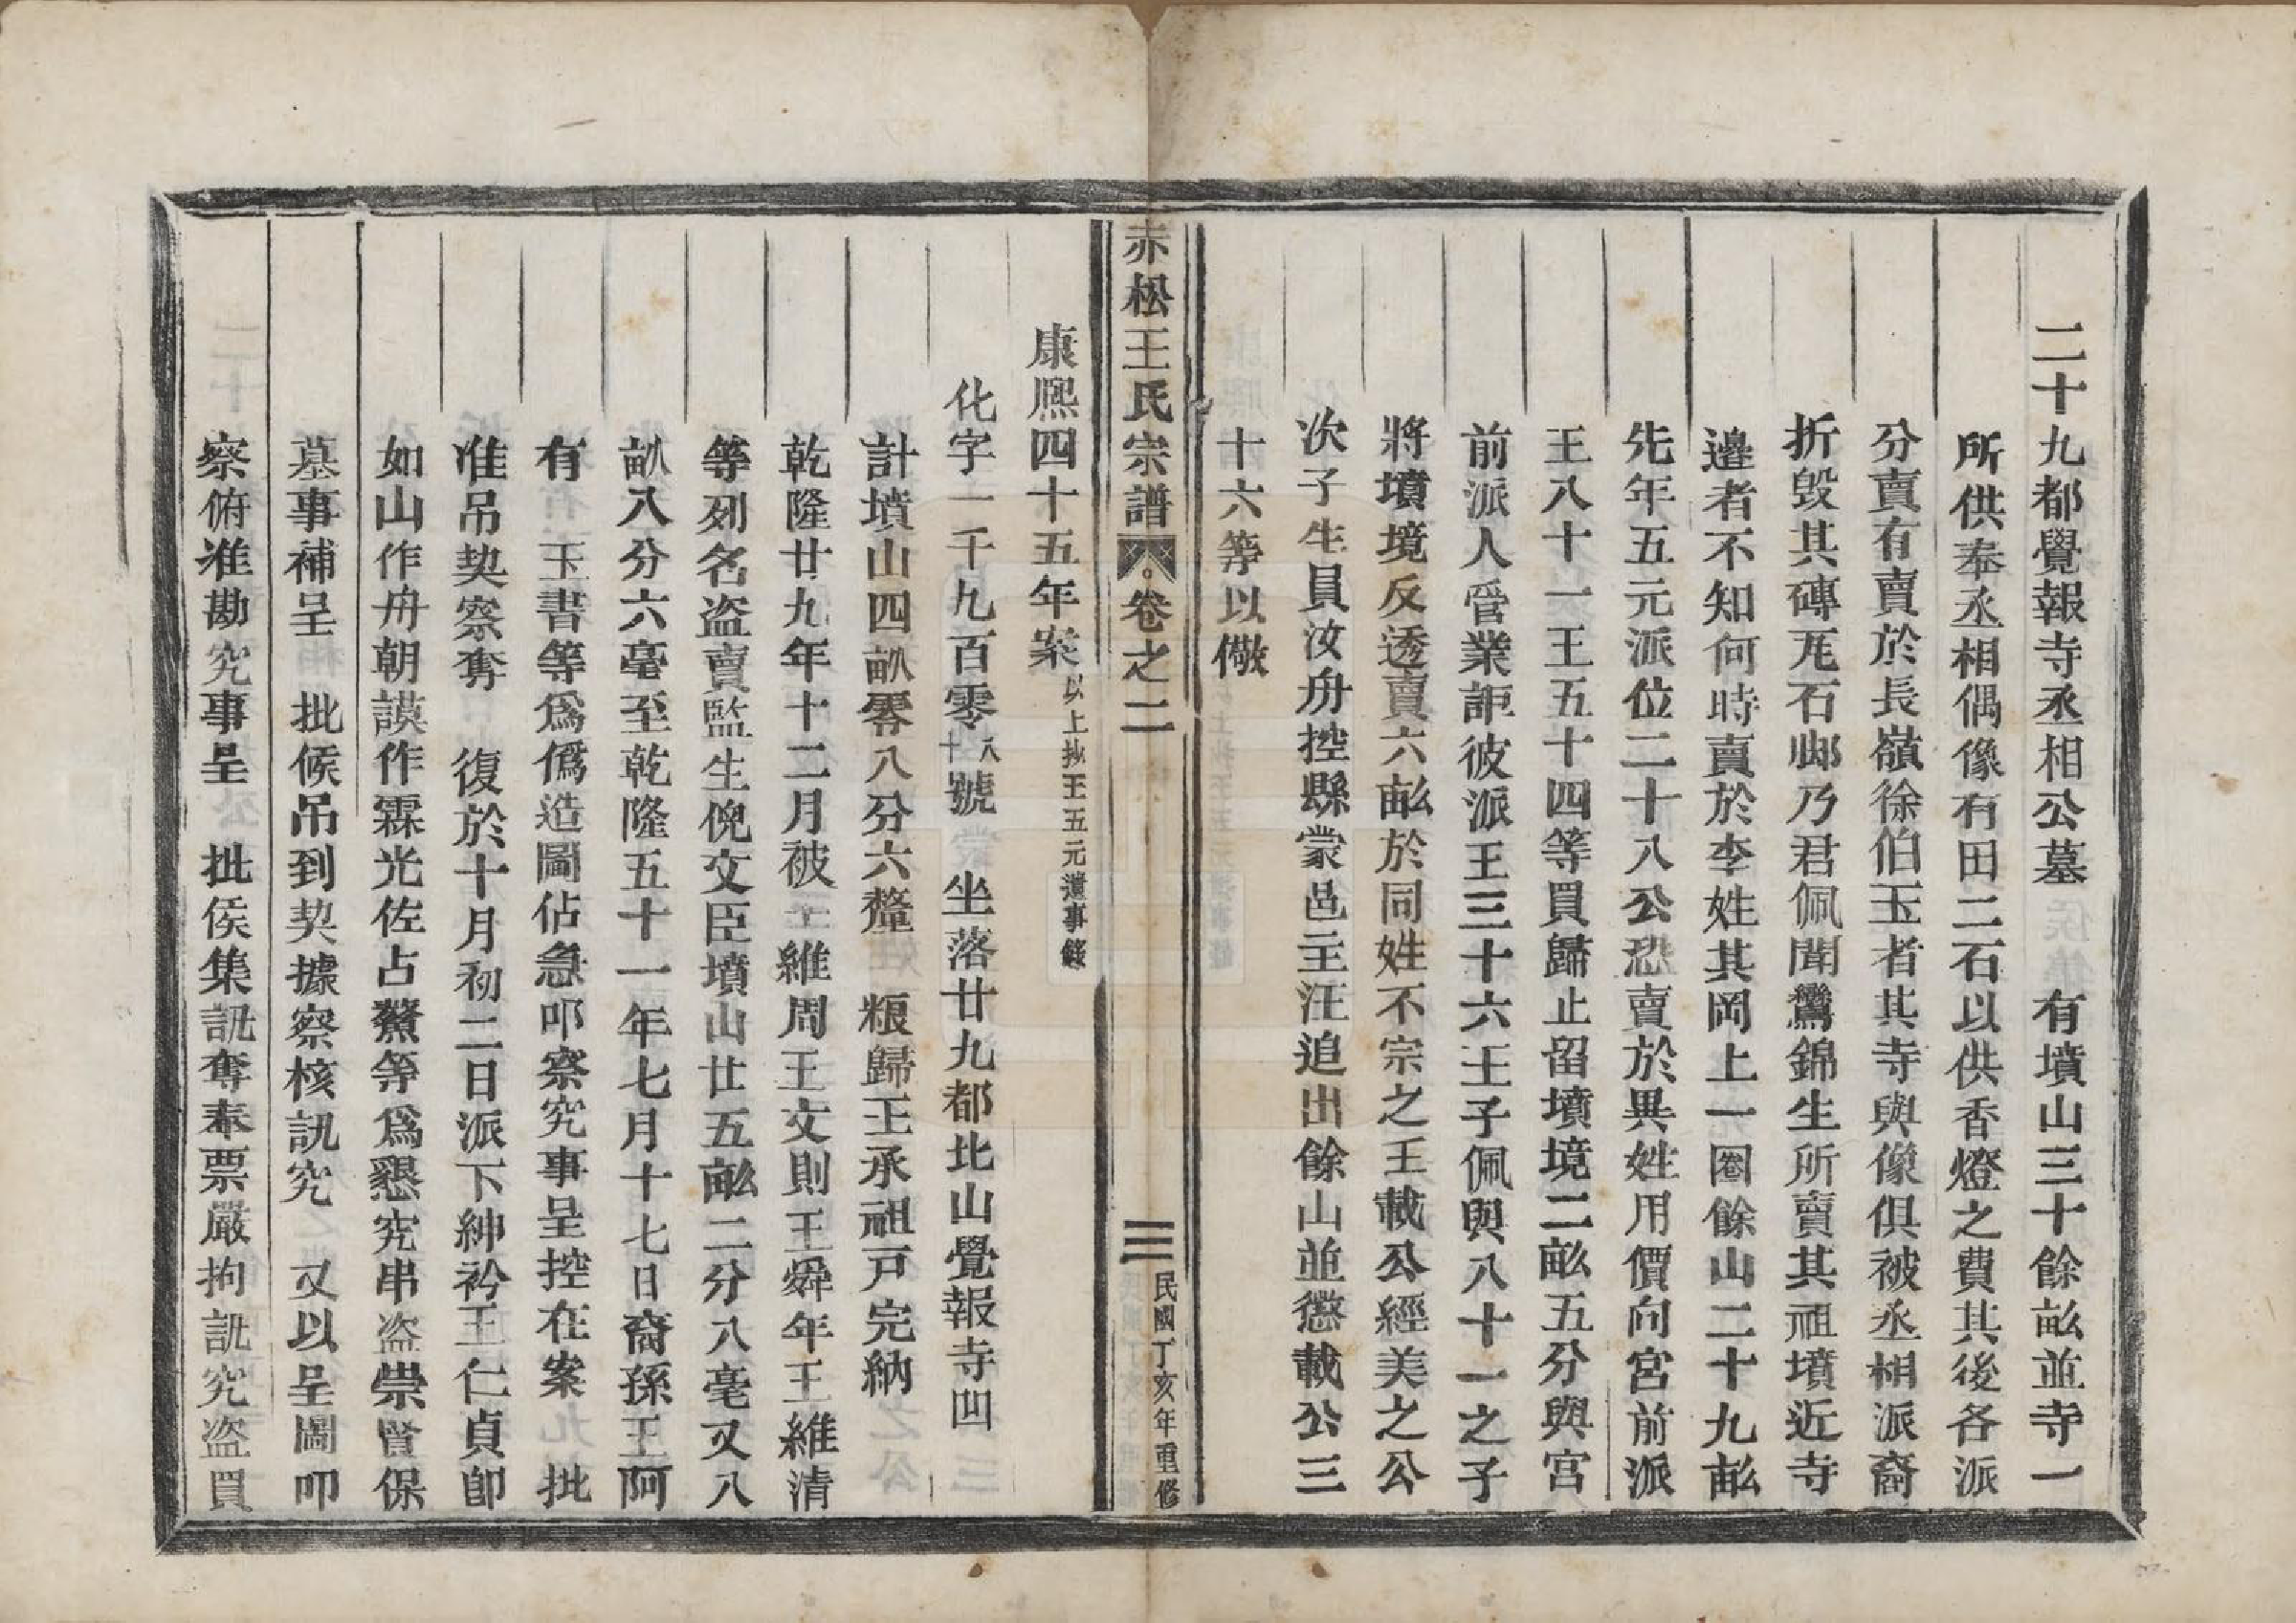 二十九都覺報寺丞相公墓　有墳山三十餘畝並寺一
所供奉丞相偶像有田二石以供香燈之費其後各派
分賣有賣於長嶺徐伯玉者其寺與像俱被丞相派裔
折毀其磚瓦石脚乃君佩聞鸞錦生所賣其祖墳近寺
邊者不知何時賣於李姓其岡上一圈餘山二十九畝
先年五元派位二十八公恐賣於異姓用價向宮前派
王八十一王五十四等買歸止留墳境二畝五分與宮
前派人管業詎彼派王三十六王子佩與八十一之子
將墳境反透賣六畝於同姓不宗之王載公經美之公
次子生員汝舟控縣蒙邑主汪追出餘山並懲載公三
十六等以儆
赤松王氏宗譜　卷之二　三　民國丁亥年重修
康熙四十五年案以上抄王五元遺事錄
化字一千九百零八十號　坐落廿九都北山覺報寺凹
計墳山四畝零八分六釐　粮歸王承祖戸完納
乾隆廿九年十二月被王維周王文則王舜年王維清
等列名盗賣監生倪文臣墳山廿五畝二分八毫又八
畝八分六毫至乾隆五十一年七月十七日裔孫王阿
有　玉書等爲僞造圖佔急叩察究事呈控在案　批
准吊契察奪　復於十月初二日派下紳衿王仁貞卽
如山作舟朝謨作霖光佐占鰲等爲懇究串盗崇賢保
墓事補呈　批候吊到契據察核訊究　又以呈圖叩
察俯准勘究事呈　批侯集訊奪奉票嚴拘訊究盗買